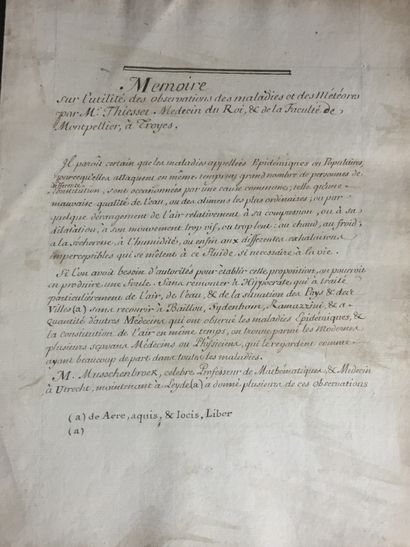 Memoire
sur l'utilité des observations des maladies et des Météores
par Mr. Thiesset Medecin du Roi, & de la Faculté de
Montpellier, à Troyes.
Il paroît certain que les maladies appellées Epidémiques ou Populaires,
parcequ'elles attaquent en même tems un grand nombre de personnes de
différente
constitution, sont occasionnées par une cause commune; telle qu'une
mauvaise qualité de l'eau, ou des alimens les plus ordinaires, ou par
quelque dérangement de l'air relativement à sa compression, ou à sa
dilatation, à son mouvement trop vif, ou trop lent: au chaud, au froid,
à la secheresse, à l'humidité, ou enfin aux differentes exhalaisons
imperceptibles qui se mêlent à ce Fluide, si necessaire à la vie.
Si l'on avoit besoin d'autorités pour établir cette proposition, on pourroit
en produire une foule. Sans remonter à Hippocrate, qui a traité
particulièrement de l'air, de l'eau, & de la situation des Pays & des
Villes (a) sans recourir à Baillou, Sydenham, Ramazzini, & a
quantité d'autres Médecins qui ont observé les maladies Epidémiques, &
la constitution de l'air en même temps, on trouve parmi les Modernes
plusieurs sçavans Médecins ou Physiciens, qui le regardent comme
ayant beaucoup de part dans toutes les maladies.
M. Musschenbroek, célebre Professeur de Mathématiques, & Medecin
à Utrecht, maintenant à Leyde (a) a donné plusieurs de ces observations
(a) de Aere, aquis, & locis, Liber
(a)